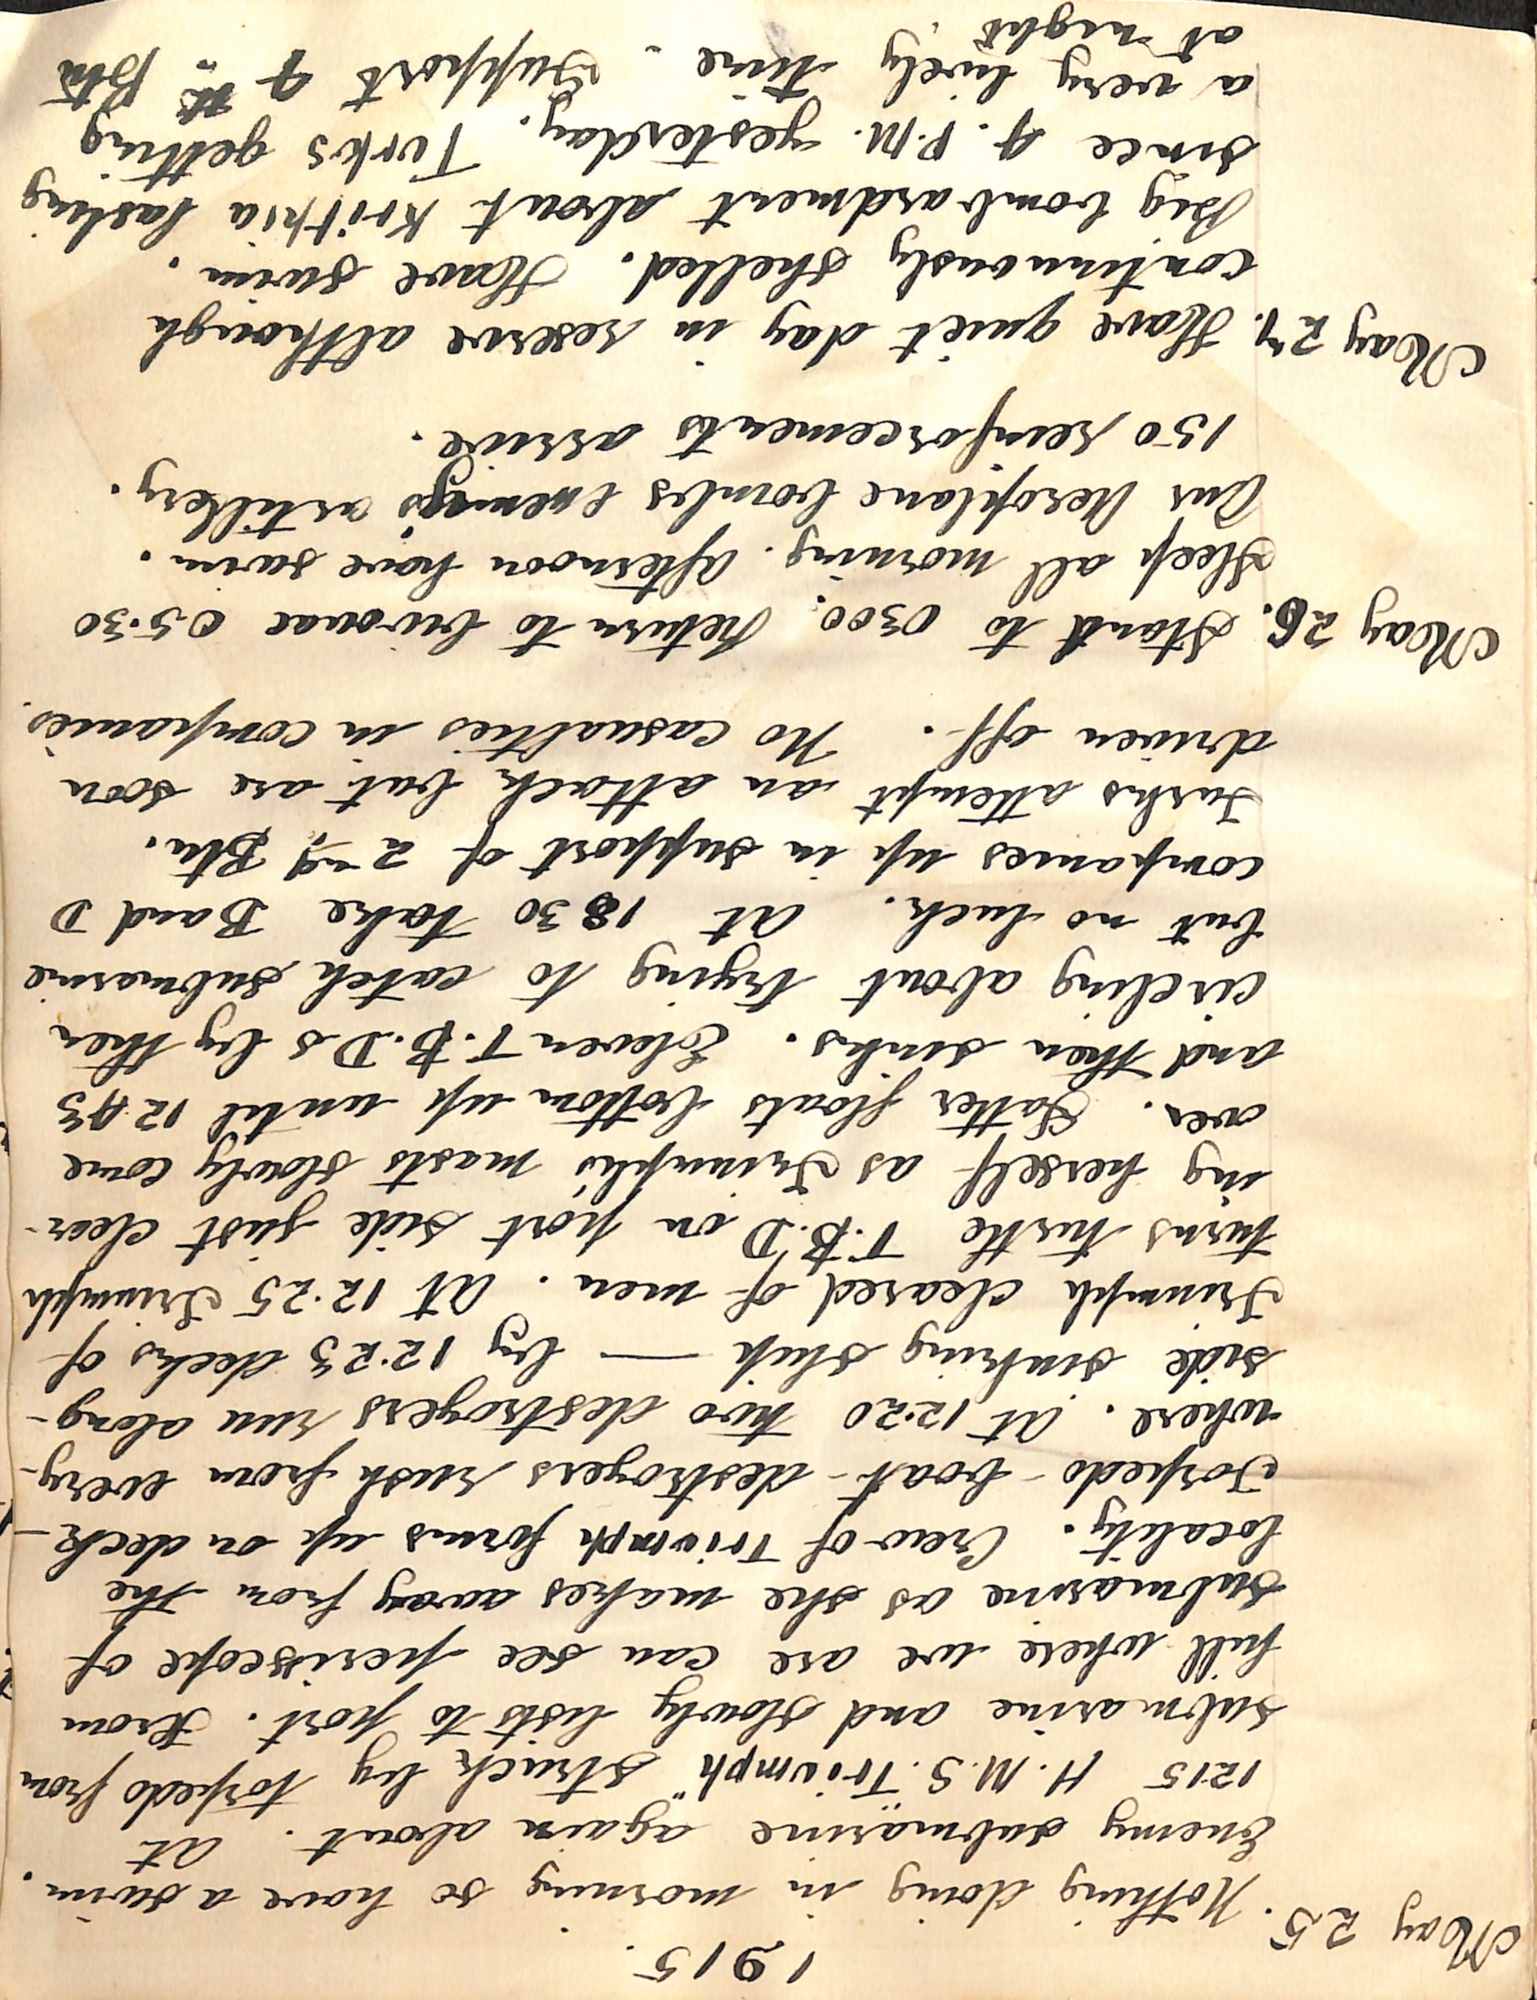 1915.
May 25. Nothing doing in morning so have a swim.
Enemy submarine again about. At
1215 H.M.S. "Triumph" struck by torpedo from
submarine and slowly lists to port. From
hill where we are can see periscope of
submarine as she makes away from the
locality. Crew of Triumph forms up on deck —
Torpedo-boat-destroyers rush from every-
where. At 12.20 two destroyers run along-
side sinking ship — by 12.23 decks of
Triumph cleared of men. At 12.25 Triumph
turns turtle T.B.D on port side just clear-
ing herself as Triumph's masts slowly come
over. Latter floats bottom up until 1243
and then sinks. Eleven T.B.Ds by then
circling about trying to catch submarine
but no luck. At 1830 take B and D
companies up in support of 2nd Btn.
Turks attempt an attack but are soon
driven off. No casualties in companies.
May 26. Stand to 0300. Return to bivouac 05.30
Sleep all morning. Afternoon have swim.
Our Aeroplane bombs enemys artillery.
150 reinforcements arrive.
May 27. Have quiet day in reserve although
continuously shelled. Have swim.
Big bombardment about Krithia lasting
since 4. P.M. yesterday. Turks getting
a very lively time. Support 4th Btn
at night.